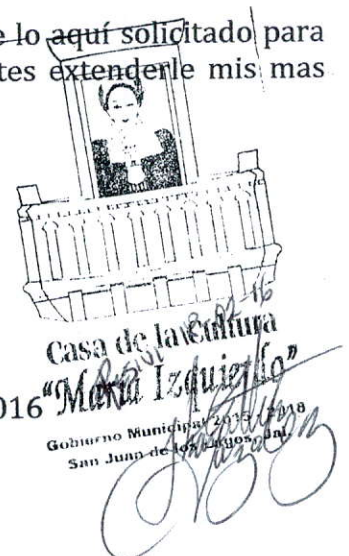 e lo aquí solicitado para
tes extenderle mis mas
Casa de la Cultura
016 "María Izquierdo"
Gobierno Municipal 2015 / 2018
San Juan de los Lagos, Jal.